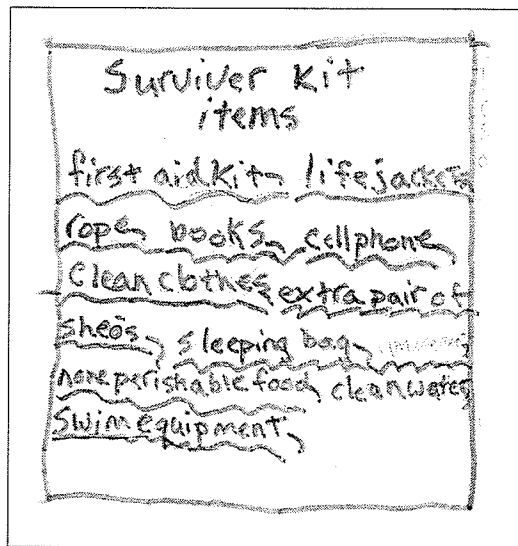 Surviver Kit
items
first aid kit, life jackets
rope, books, cellphone,
Clean clothes, extra pair of
sheos, sleeping bag,
none perishable food, clean water,
Swim equipment,